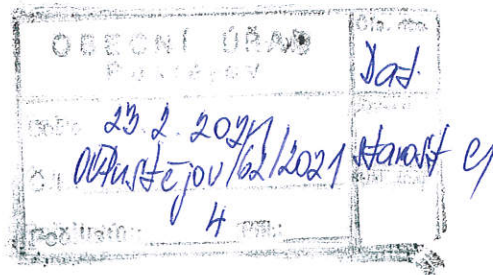 OBECNÍ ÚŘAD
Pustějov
Čís. dop.
Dat.
23. 2. 2021
Č.j. OÚPustějov/62/2021
starost
Počet listů: 4 Příl.: